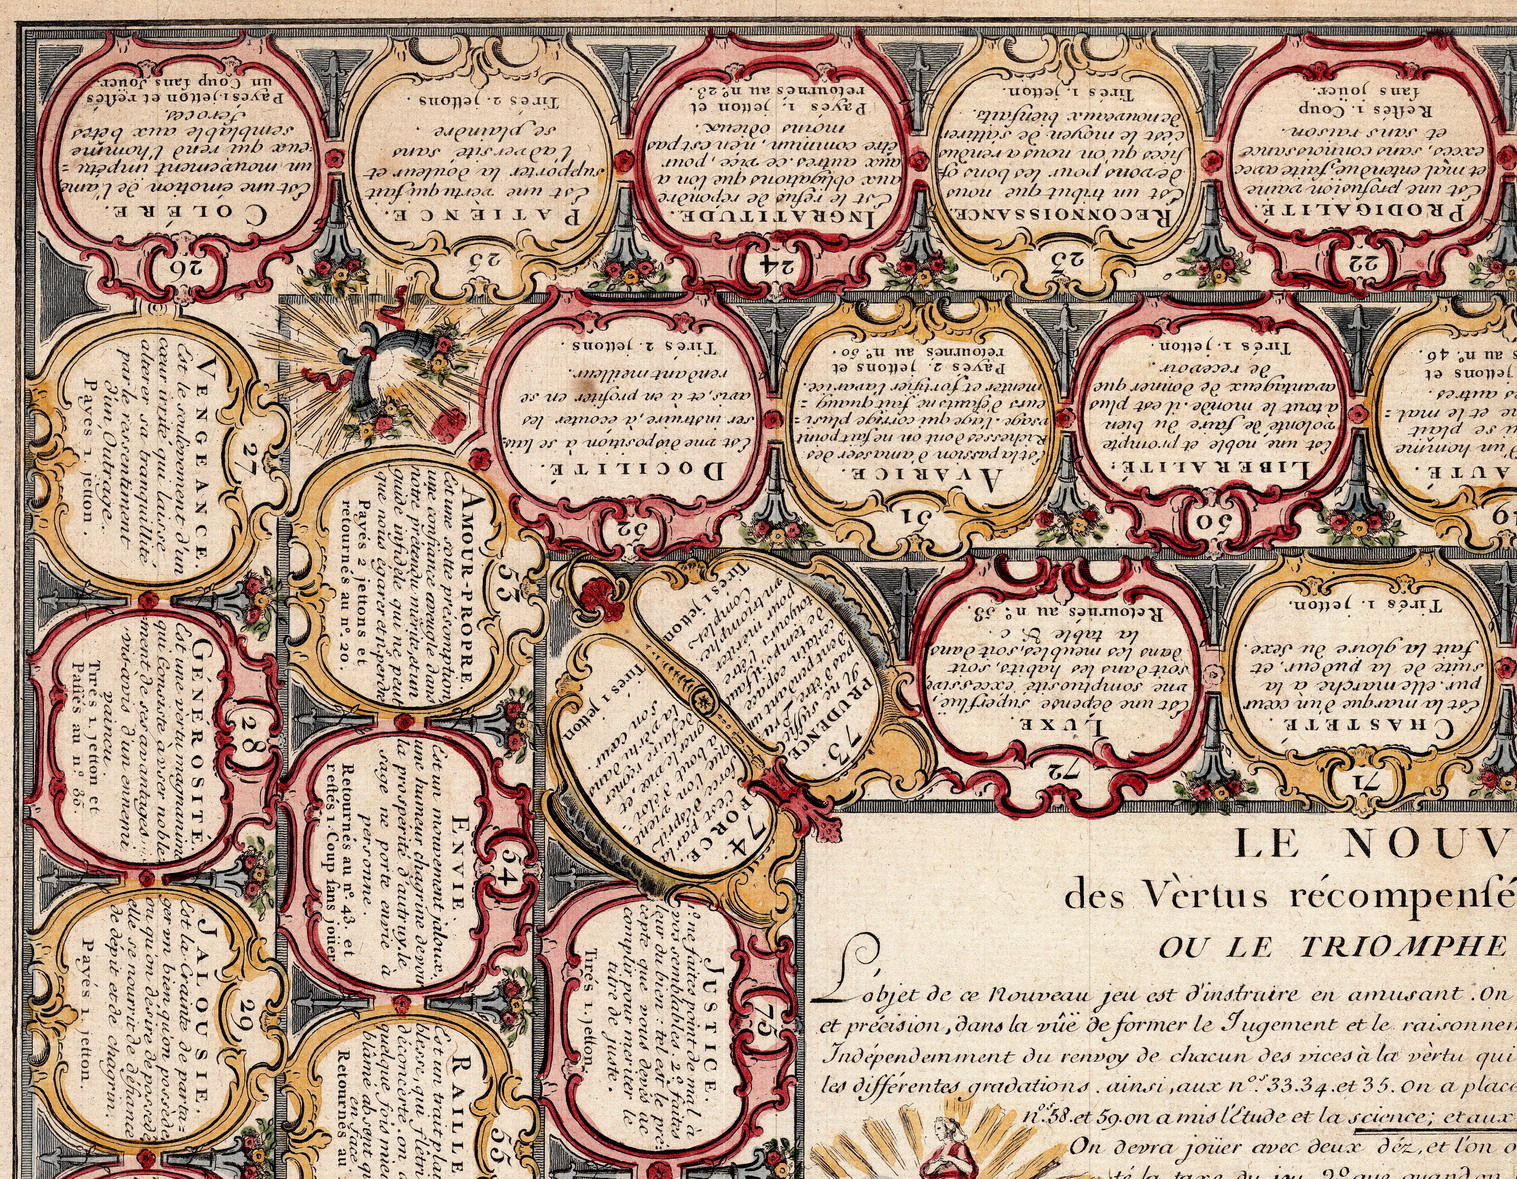 22
PRODIGALITÉ.
Est une profusion vaine
et mal entendue, faite avec
excès, sans connoissance
et sans raison.
Restés 1. Coup
sans joüer.
23
RECONNOISSANCE.
Est un tribut que nous
devons pour les bons of
fices qu'on nous a rendus
c'est le moyen de s'attirer
de nouveaux bienfaits.
Tirés 1. jetton.
24
INGRATITUDE.
Est le refus de répondre
aux obligations que l'on a
aux autres. ce vice, pour
être commun, n'en est pas
moins odieux.
Payés 1. jetton et
retournes au nº 23.
25
PATIENCE.
Est une vertu qui fait
supporter la douleur et
l'adversité sans
se plaindre.
Tirés 2. jettons.
26
COLÉRE.
Est une émotion de l'ame
un mouvement impétu=
eux qui rend l'homme
semblable aux bêtes
feroces.
Payés 1. jetton et restes
un Coup sans Joüer.
27
VENGEANCE.
Est le soulevement d'un
cœur irrité qui laisse
alterer sa tranquillité
par le ressentiment
d'un Outrage.
Payés 1. jetton.
28
GÉNÉROSITÉ.
Est une vertu magnanime
qui Consiste à user noble=
ment de ses avantages
vis-à-vis d'un ennemi
vaincu.
Tirés 1. jetton et
Passés au nº 35.
29
JALOUSIE.
Est la Crainte de parta=
ger un bien qu'on possède
ou qu'on desire de posseder
elle se nourrit de défiance
de dépit et de chagrin.
Payés 1. jetton.
50
LIBERALITÉ.
Est une noble et prompte
volonté de faire du bien
à tout le monde. il est plus
avantageux de donner que
de recevoir.
Tirés 1. jetton.
51
AVARICE.
Est la passion d'amasser des
Richesses dont on ne fait point
usage. l'age, qui corrige plusi=
eurs défauts ne fait qu'aug=
menter et fortifier l'avarice.
Payés 2. jettons et
retournes au nº 50.
52
DOCILITÉ.
Est une disposition à se lais=
ser instruire, à écouter les
avis, et à en profiter en se
rendant meilleur.
Tirés 2. jettons.
53
AMOUR-PROPRE.
Est une sotte présomption
une confiance aveugle dans
notre prétendu mérite, et un
guide infidèle que ne peut
que nous égarer et nous perdre
Payés 2 jettons et
retournés au nº. 20.
54
ENVIE.
Est un mouvement jaloux,
une humeur chagrine de voir
la prosperité d'autruy. le
sage ne porte envie à
personne.
Retournés au nº. 43. et
restés 1 Coup sans joüer
55
RAILLE
Est un trait
blesse, qui flétrit
déconcerte, on
quelque fois mieux
blâme absent qu'
en face.
Retournés au
71
CHASTETÉ.
Est la marque d'un cœur
pur. elle marche à la
suite de la pudeur, et
fait la gloire du Sexe.
Tirés 1. jetton.
72
LUXE.
Est une dépense superflüe
une somptuosité excessive
soit dans les habits, soit
dans les meubles, soit dans
la table &. c.
Retournés au nº. 58.
73
PRUDENCE.
Il ne suffit
pas d'être
prudent pendant un
certain temps, il faut
toujours l'être
pour mériter
Tirés 1 jetton.
74.
FORCE.
C'est par la
force de l'esprit
que l'on vient
à bout d'éloi
gner le vice et
de faire régner
la vertu dans
son cœur.
Tirés 1 jetton
75
JUSTICE.
1º ne faites point de mal à
vos semblables. 2º. faites
leur du bien: tel est le pré=
cepte que vous devés ac
complir pour mériter le
titre de juste.
Tirés 1. jetton.
LE NOUV
des Vèrtus récompensé
OU LE TRIOMPHE
L'objet de ce Nouveau jeu est d'instruire en amusant. On
et précision, dans la vûë de former le Jugement et le raisonnem
Indépendemment du renvoy de chacun des vices à la vèrtu qui
les différentes gradations. ainsi, aux nos. 33. 34. et 35. On a placé
nos. 58. et 59. on a mis l'Etude et la science; et aux
On devra joüer avec deux déz, et l'on
té la taxe du jeu. 2º que quand on